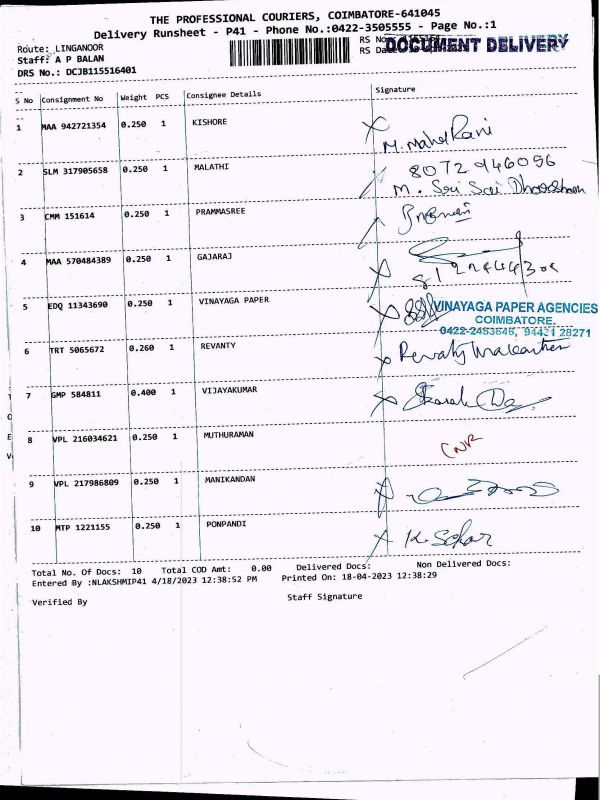 THE PROFESSIONAL COURIERS, COIMBATORE-641045
Delivery Runsheet - P41 - Phone No.:0422-3505555 - Page No.:1
Route: LINGANOOR
RS No
DOCUMENT DELIVERY
Staff: A P BALAN
RS Da
DRS No.: DCJB115516401
S No Consignment No Weight PCS Consignee Details Signature
1 MAA 942721354 0.250 1 KISHORE
M. Mahel Rani
2 SLM 317905658 0.250 1 MALATHI 8072946056
M. Sri Sai
3 CMM 151614 0.250 1 PRAMMASREE
4 MAA 570484389 0.250 1 GAJARAJ
5 EDQ 11343690 0.250 1 VINAYAGA PAPER VINAYAGA PAPER AGENCIES
COIMBATORE.
0422-2453546, 94421 28271
6 TRT 5065672 0.260 1 REVANTY Revathy
7 GMP 584811 0.400 1 VIJAYAKUMAR
8 VPL 216034621 0.250 1 MUTHURAMAN CNR
9 VPL 217986809 0.250 1 MANIKANDAN
10 MTP 1221155 0.250 1 PONPANDI K. Sekar
Total No. Of Docs: 10 Total COD Amt: 0.00 Delivered Docs: Non Delivered Docs:
Entered By :NLAKSHMIP41 4/18/2023 12:38:52 PM Printed On: 18-04-2023 12:38:29
Verified By Staff Signature